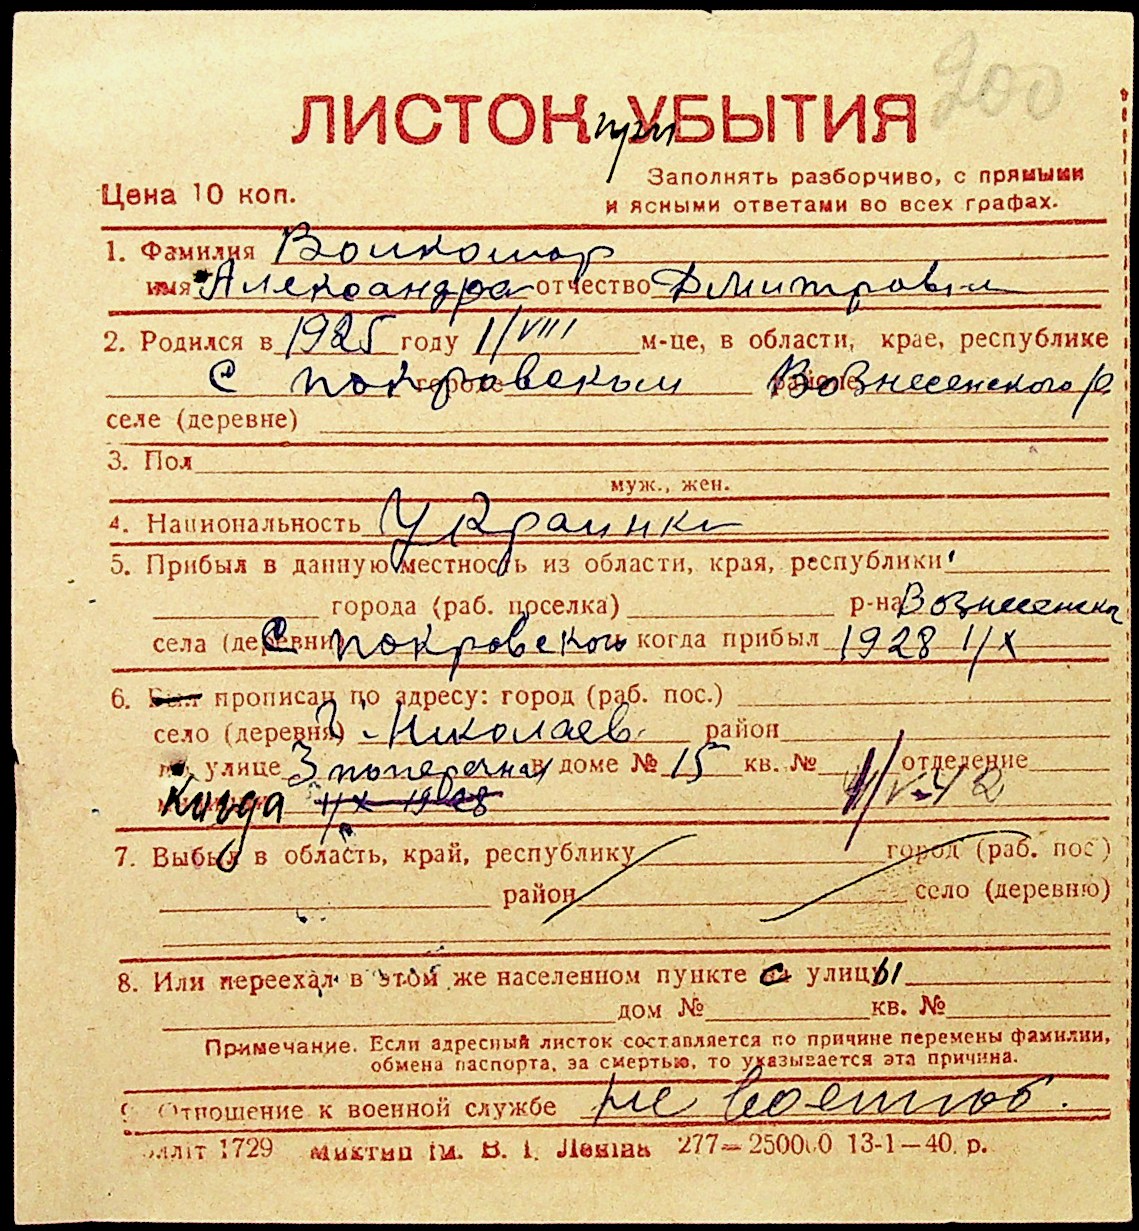 200
ЛИСТОК при УБЫТИЯ
Цена 10 коп.
Заполнять разборчиво, с прямыми
и ясными ответами во всех графах.
1. Фамилия Волкошар
имя Александра отчество Дмитровна
2. Родился в 1925 году 1/VIII м-це, в области, крае, республике
с покровским городе районе Вознесенского р
селе (деревне)
3. Пол
муж., жен.
4. Национальность Украинка
5. Прибыл в данную местность из области, края, республики
города (раб. поселка) р-на Вознесенск
села (деревни) с покровского когда прибыл 1928 1/X
6. Был прописан по адресу: город (раб. пос.)
село (деревня) г. Николаев район
улице 3 поперечная в доме № 15 кв. № отделение
Когда 1/X 1928 1/V-42
7. Выбыл в область, край, республику город (раб. пос)
район село (деревню)
8. Или переехал в этом же населенном пункте с улицы
дом № кв. №
Примечание. Если адресный листок составляется по причине перемены фамилии,
обмена паспорта, за смертью, то указывается эта причина.
9. Отношение к военной службе не военноб.
1729 им. В. І. Леніна 277—250000 13-1—40. р.